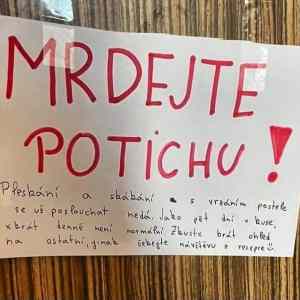 MRDEJTE
POTICHU!
Plesbání a sbábání s vrzáním postele
se už poslouchat nedá. Jako pět dní v kuse,
x krát denně není normální Zkuste brát ohled
na ostatní, jinak čekejte návštěvu z recepce